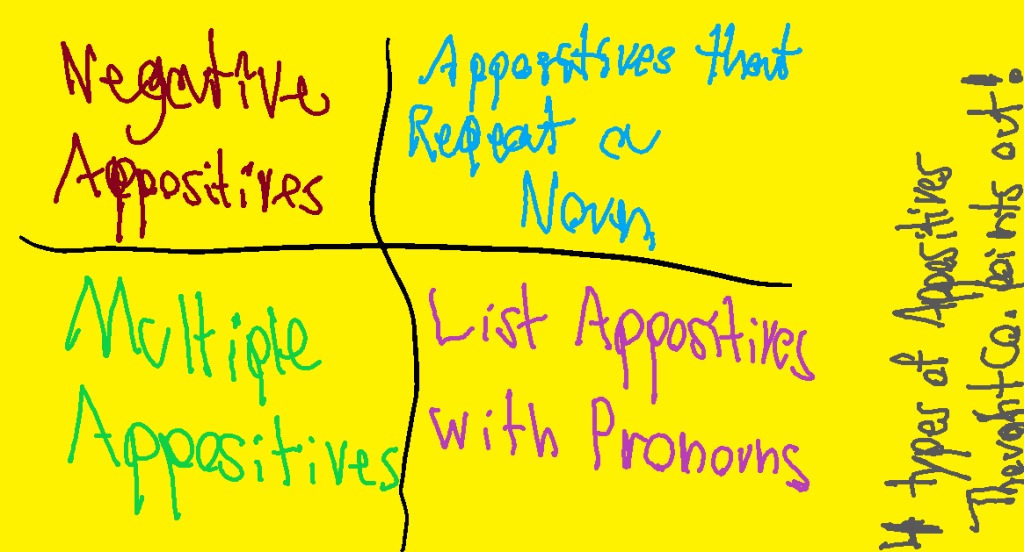 Negative
Appositives
Appositives that
Repeat a
Noun
Multiple
Appositives
List Appositives
with Pronouns
4 types of Appositives
ThoughtCo. points out!